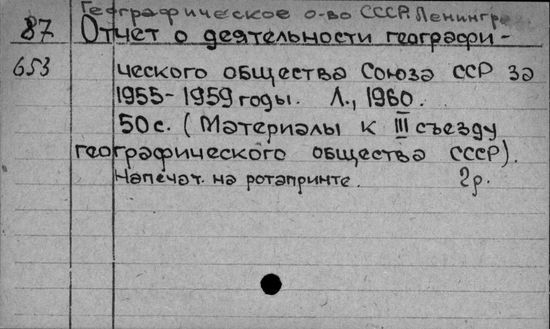 Географическое о-во СССР. Ленингр
87 Отчет о деятельности географи-
653 ческого общества Союза ССР за
1955-1959 годы. Л., 1960.
50 с. (Материалы к III съезду
географического общества СССР).
Напечат. на ротапринте. 2р.